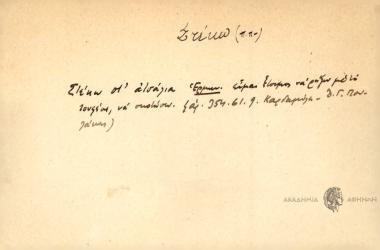 Στέκω (π.π.)
Στέκω στ' ἀτσάλια Ἑρμην. εἶμαι ἕτοιμος νά ρίξω μέ τό
τουφέκι, νά σκοτώσω. χφ. 354. 61. 9. Καρδαμύλη - Δ. Γ. Που-
λάκης)
ΑΚΑΔΗΜΙΑ ΑΘΗΝΩΝ